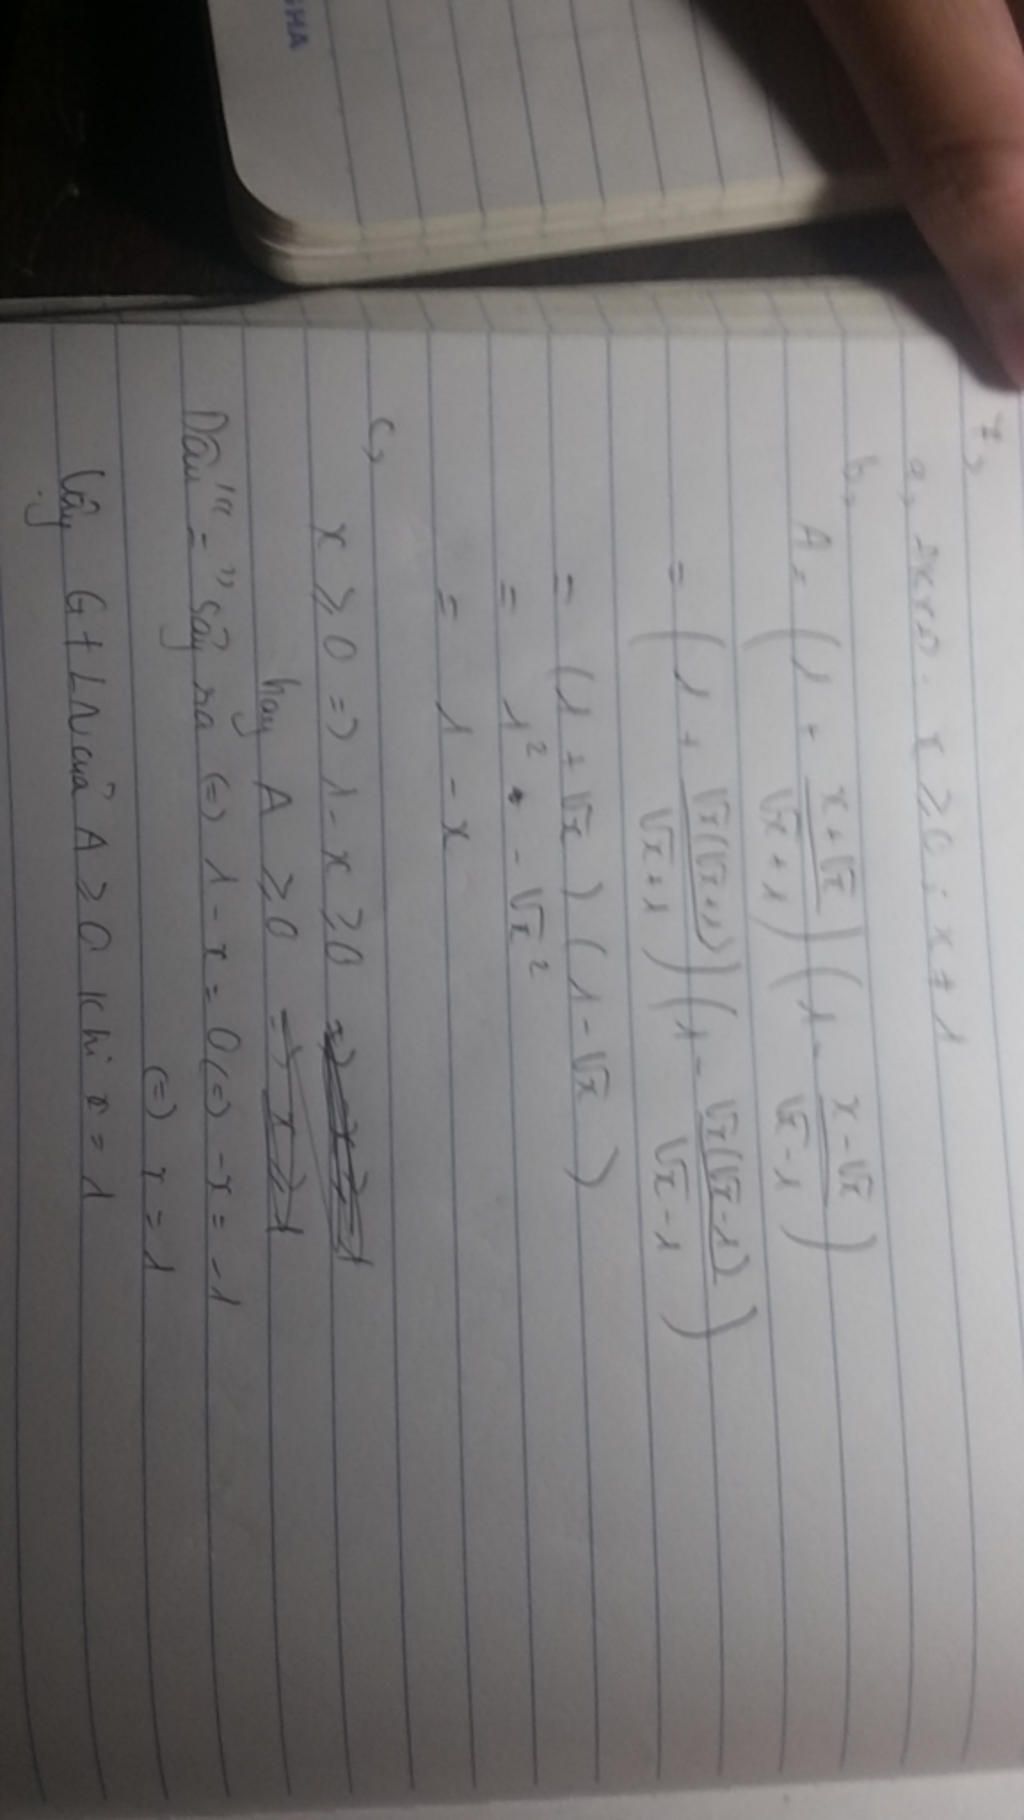 GHA
7,
a, ĐKXĐ: x ≥ 0 ; x ≠ 1
b,
A = (1 + \frac{x + √x}{√x + 1})(1 - \frac{x - √x}{√x - 1})
= (1 + \frac{√x(√x + 1)}{√x + 1})(1 - \frac{√x(√x - 1)}{√x - 1})
= (1 + √x)(1 - √x)
= 1² - √x²
= 1 - x
c,
x ≥ 0 => 1 - x ≥ 0
hay A ≥ 0 => x ≥ 1
Dấu "=" sảy ra (=) 1 - x = 0 (=) -x = -1
(=) x = 1
Vậy GTLN của A ≥ 0 khi x = 1